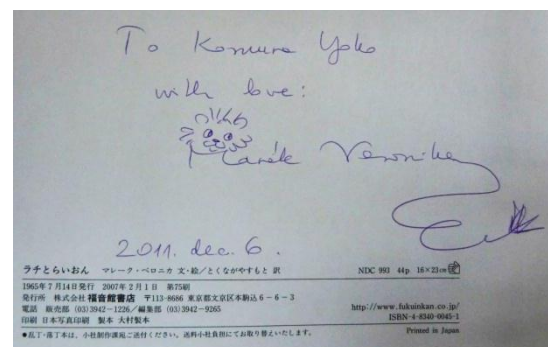 To Komura Yoko
with love:
Marék Veronika
2011. dec. 6.
ラチとらいおん マレーク・ベロニカ 文・絵／とくながやすもと 訳 NDC 993 44p 16×23㎝
1965年7月14日発行 2007年2月1日 第75刷
発行所 株式会社 福音館書店 〒113-8686 東京都文京区本駒込6-6-3
電話 販売部 (03)3942-1226／編集部 (03)3942-9265 http://www.fukuinkan.co.jp/
印刷 日本写真印刷 製本 大村製本 ISBN 4-8340-0045-1
●乱丁・落丁本は、小社制作課宛ご送付ください。送料小社負担にてお取り替えいたします。 Printed in Japan